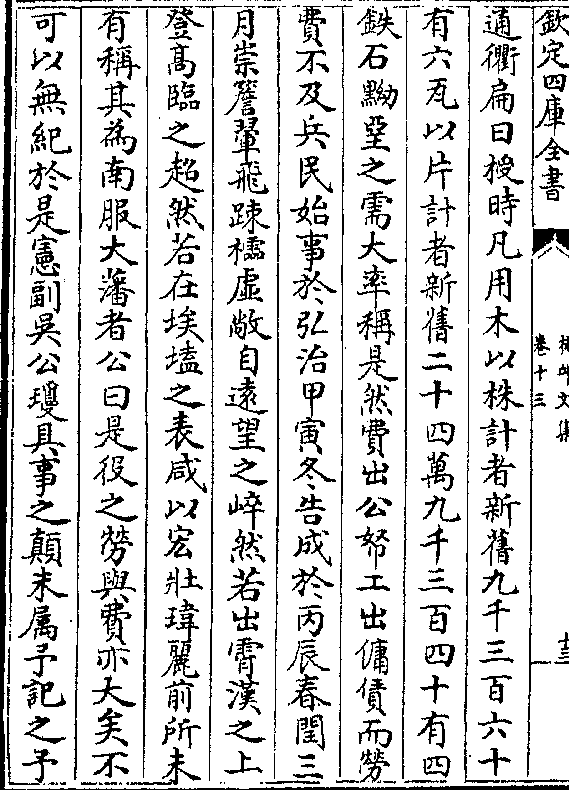 欽定四庫全書
卷十三
通衢扁曰授時凡用木以株計者新舊九千三百六十
有六瓦以片計者新舊二十四萬九千三百四十有四
鉄石黝堊之需大率稱是然費出公帑工出傭僨而勞
費不及兵民始事於弘治甲寅冬告成於丙辰春閏三
月崇簷翬飛踈櫺虛敞自遠望之崒然若出霄漢之上
登髙臨之超然若在埃壒之表咸以宏壯瑋麗前所未
有稱其為南服大藩者公曰是役之勞與費亦大矣不
可以無紀於是憲副吳公瓊具事之顛末属予記之予